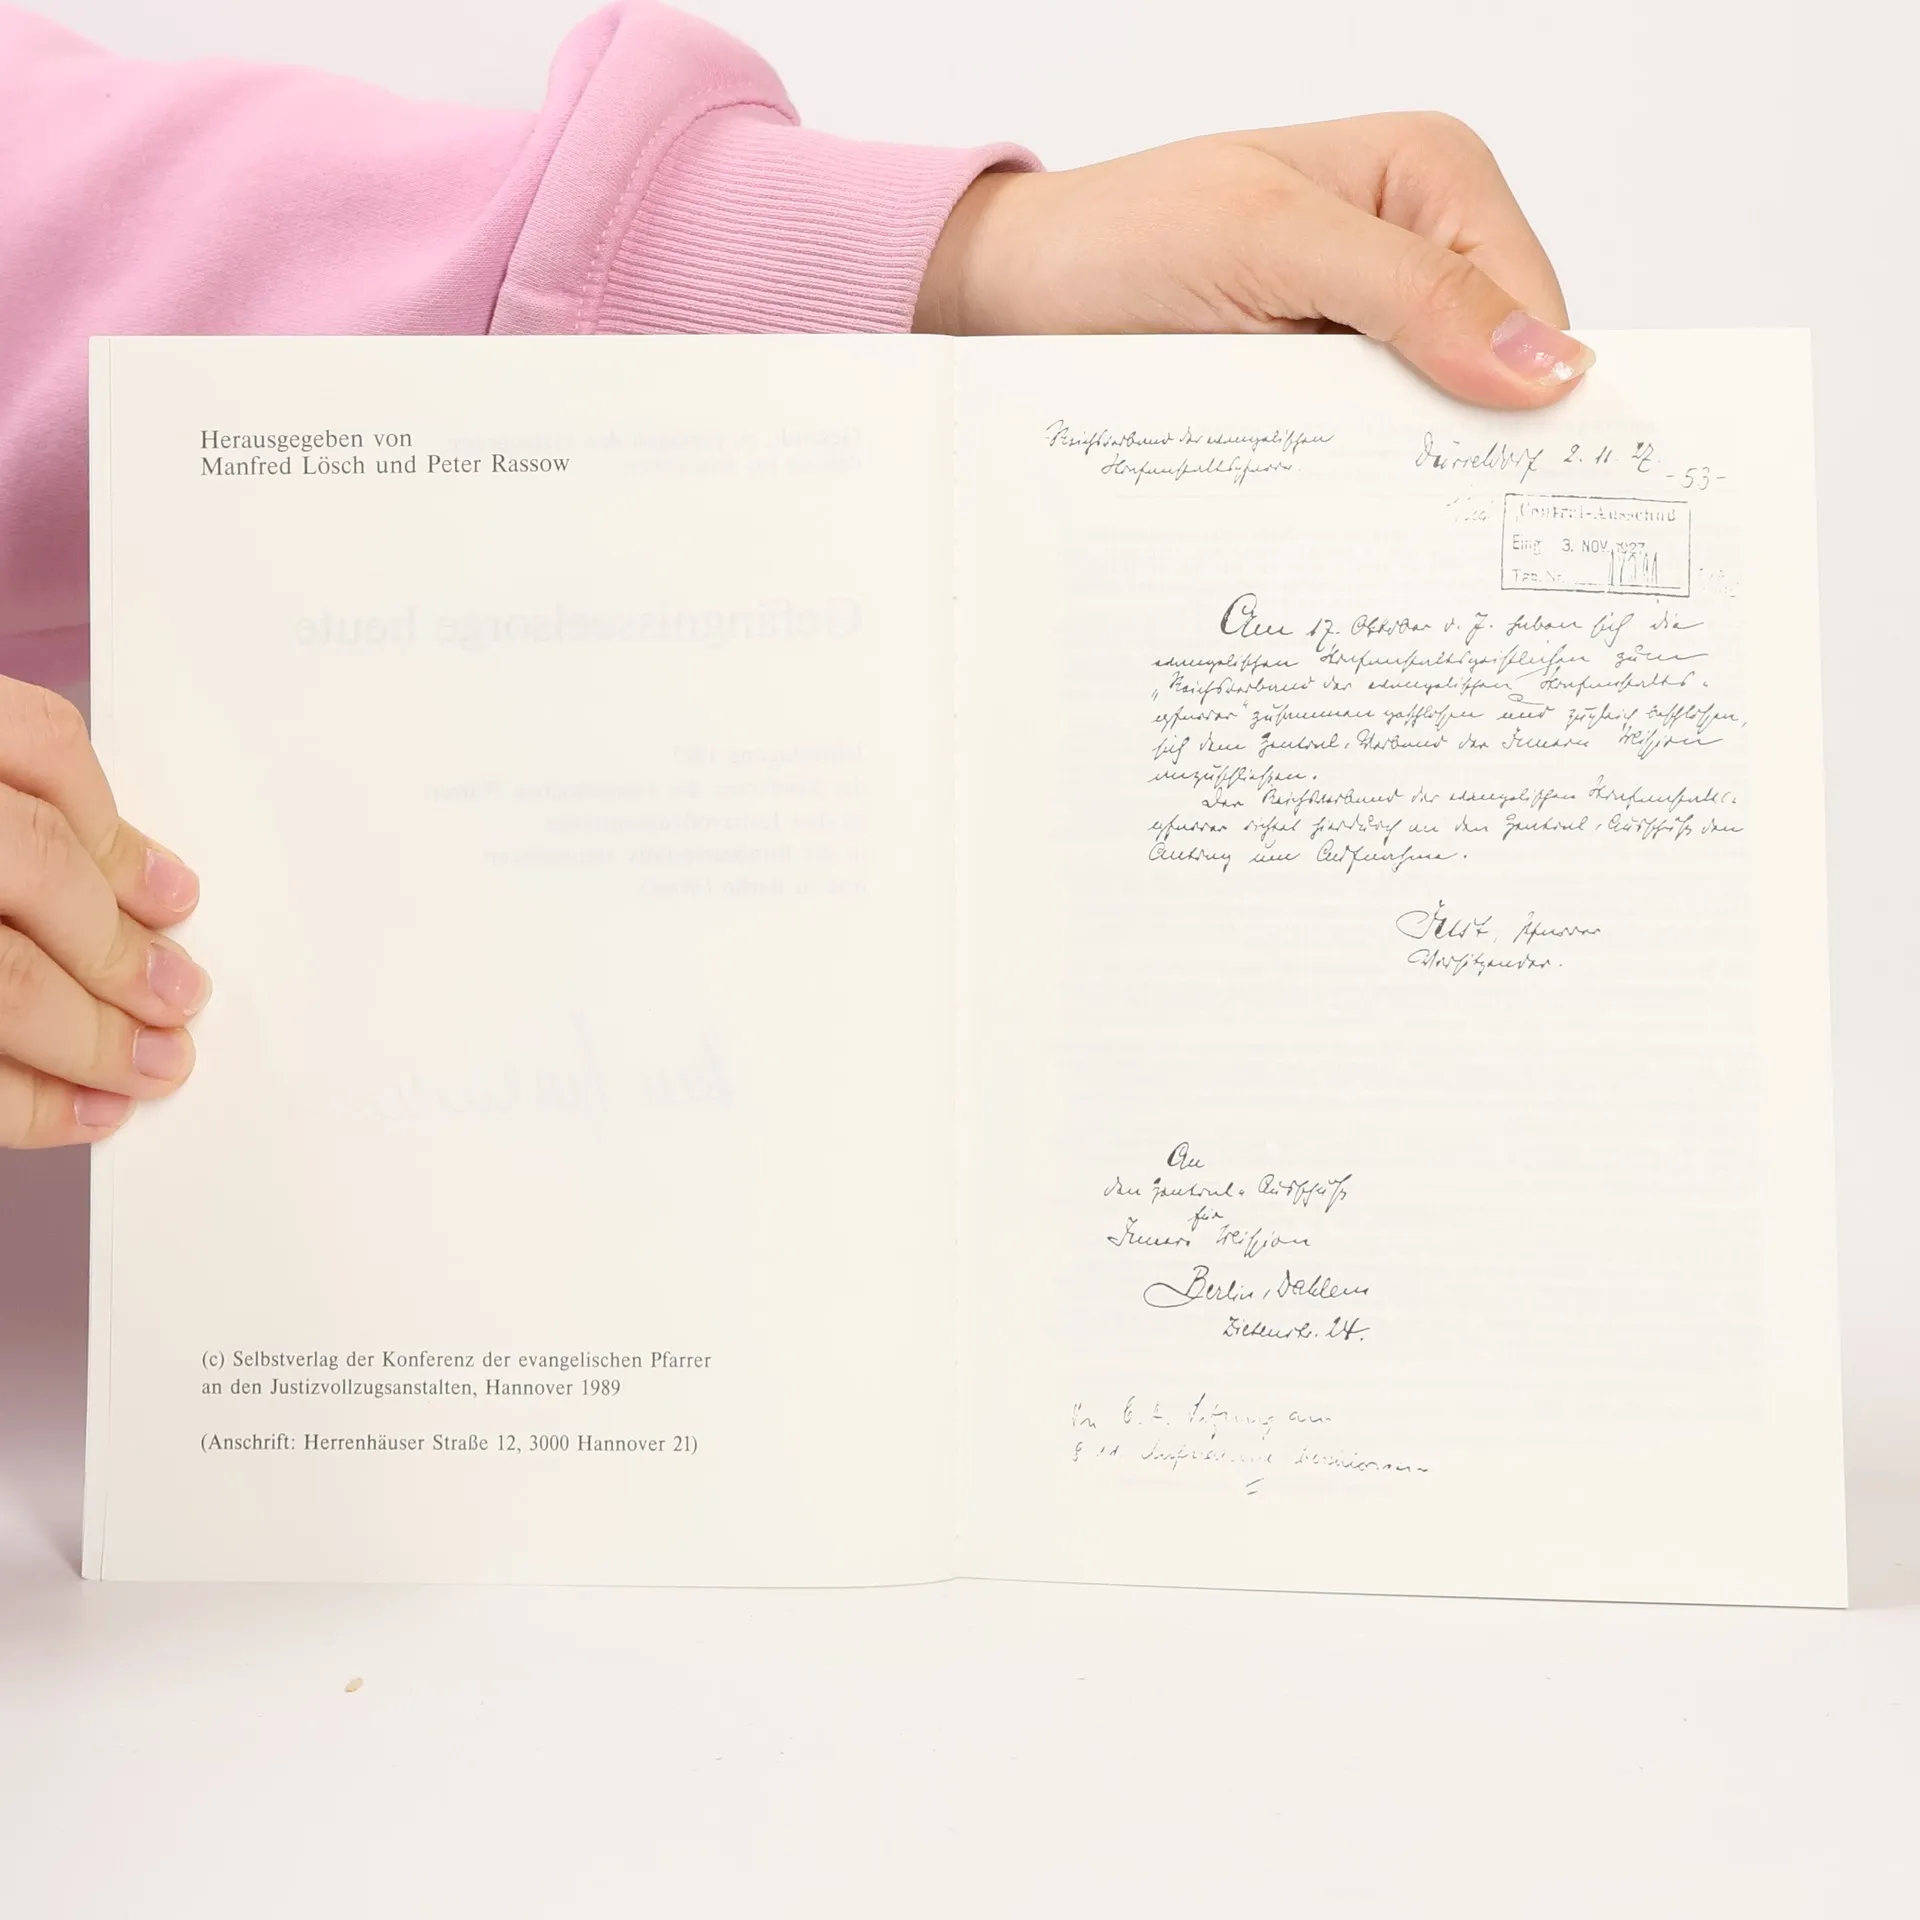 Herausgegeben von
Manfred Lösch und Peter Rassow
(c) Selbstverlag der Konferenz der evangelischen Pfarrer
an den Justizvollzugsanstalten, Hannover 1989
(Anschrift: Herrenhäuser Straße 12, 3000 Hannover 21)
Reichsverband der evangelischen
Strafanstaltspfarrer.
Düsseldorf 2. 11. 27.
-53-
Central-Ausschuß
Eing 3. NOV. 1927
Am 17. Oktober d. J. haben sich die
evangelischen Strafanstaltsgeistlichen zum
„Reichsverband der evangelischen Strafanstalts-
pfarrer" zusammengeschlossen und zugleich beschlossen,
sich dem Zentral-Verband der Inneren Mission
anzuschließen.
Der Reichsverband der evangelischen Strafanstalts-
pfarrer richtet hierdurch an den Zentral-Ausschuß den
Antrag um Aufnahme.
Pfarrer
Vorsitzender.
An
den Zentral-Ausschuß
für
Innere Mission
Berlin-Dahlem
Zietenstr. 24.
In Sitzung am
Aufnahme beschlossen
Gefängnisseelsorge heute